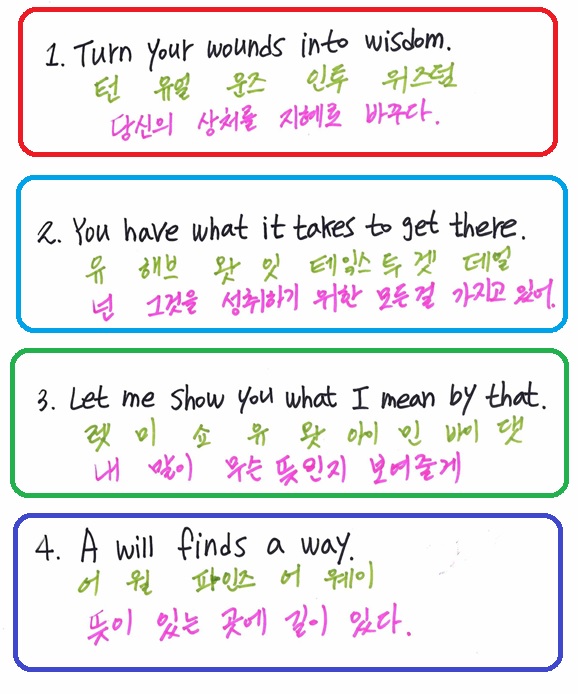 1. Turn your wounds into wisdom.
턴 유얼 운즈 인투 위즈덤
당신의 상처를 지혜로 바꾸다.
2. You have what it takes to get there.
유 해브 왓 잇 테잌스 투 겟 데얼
넌 그것을 성취하기 위한 모든걸 가지고 있어.
3. Let me show you what I mean by that.
렛 미 쇼 유 왓 아이 민 바이 댓
내 말이 무슨 뜻인지 보여줄게
4. A will finds a way.
어 윌 파인즈 어 웨이
뜻이 있는 곳에 길이 있다.